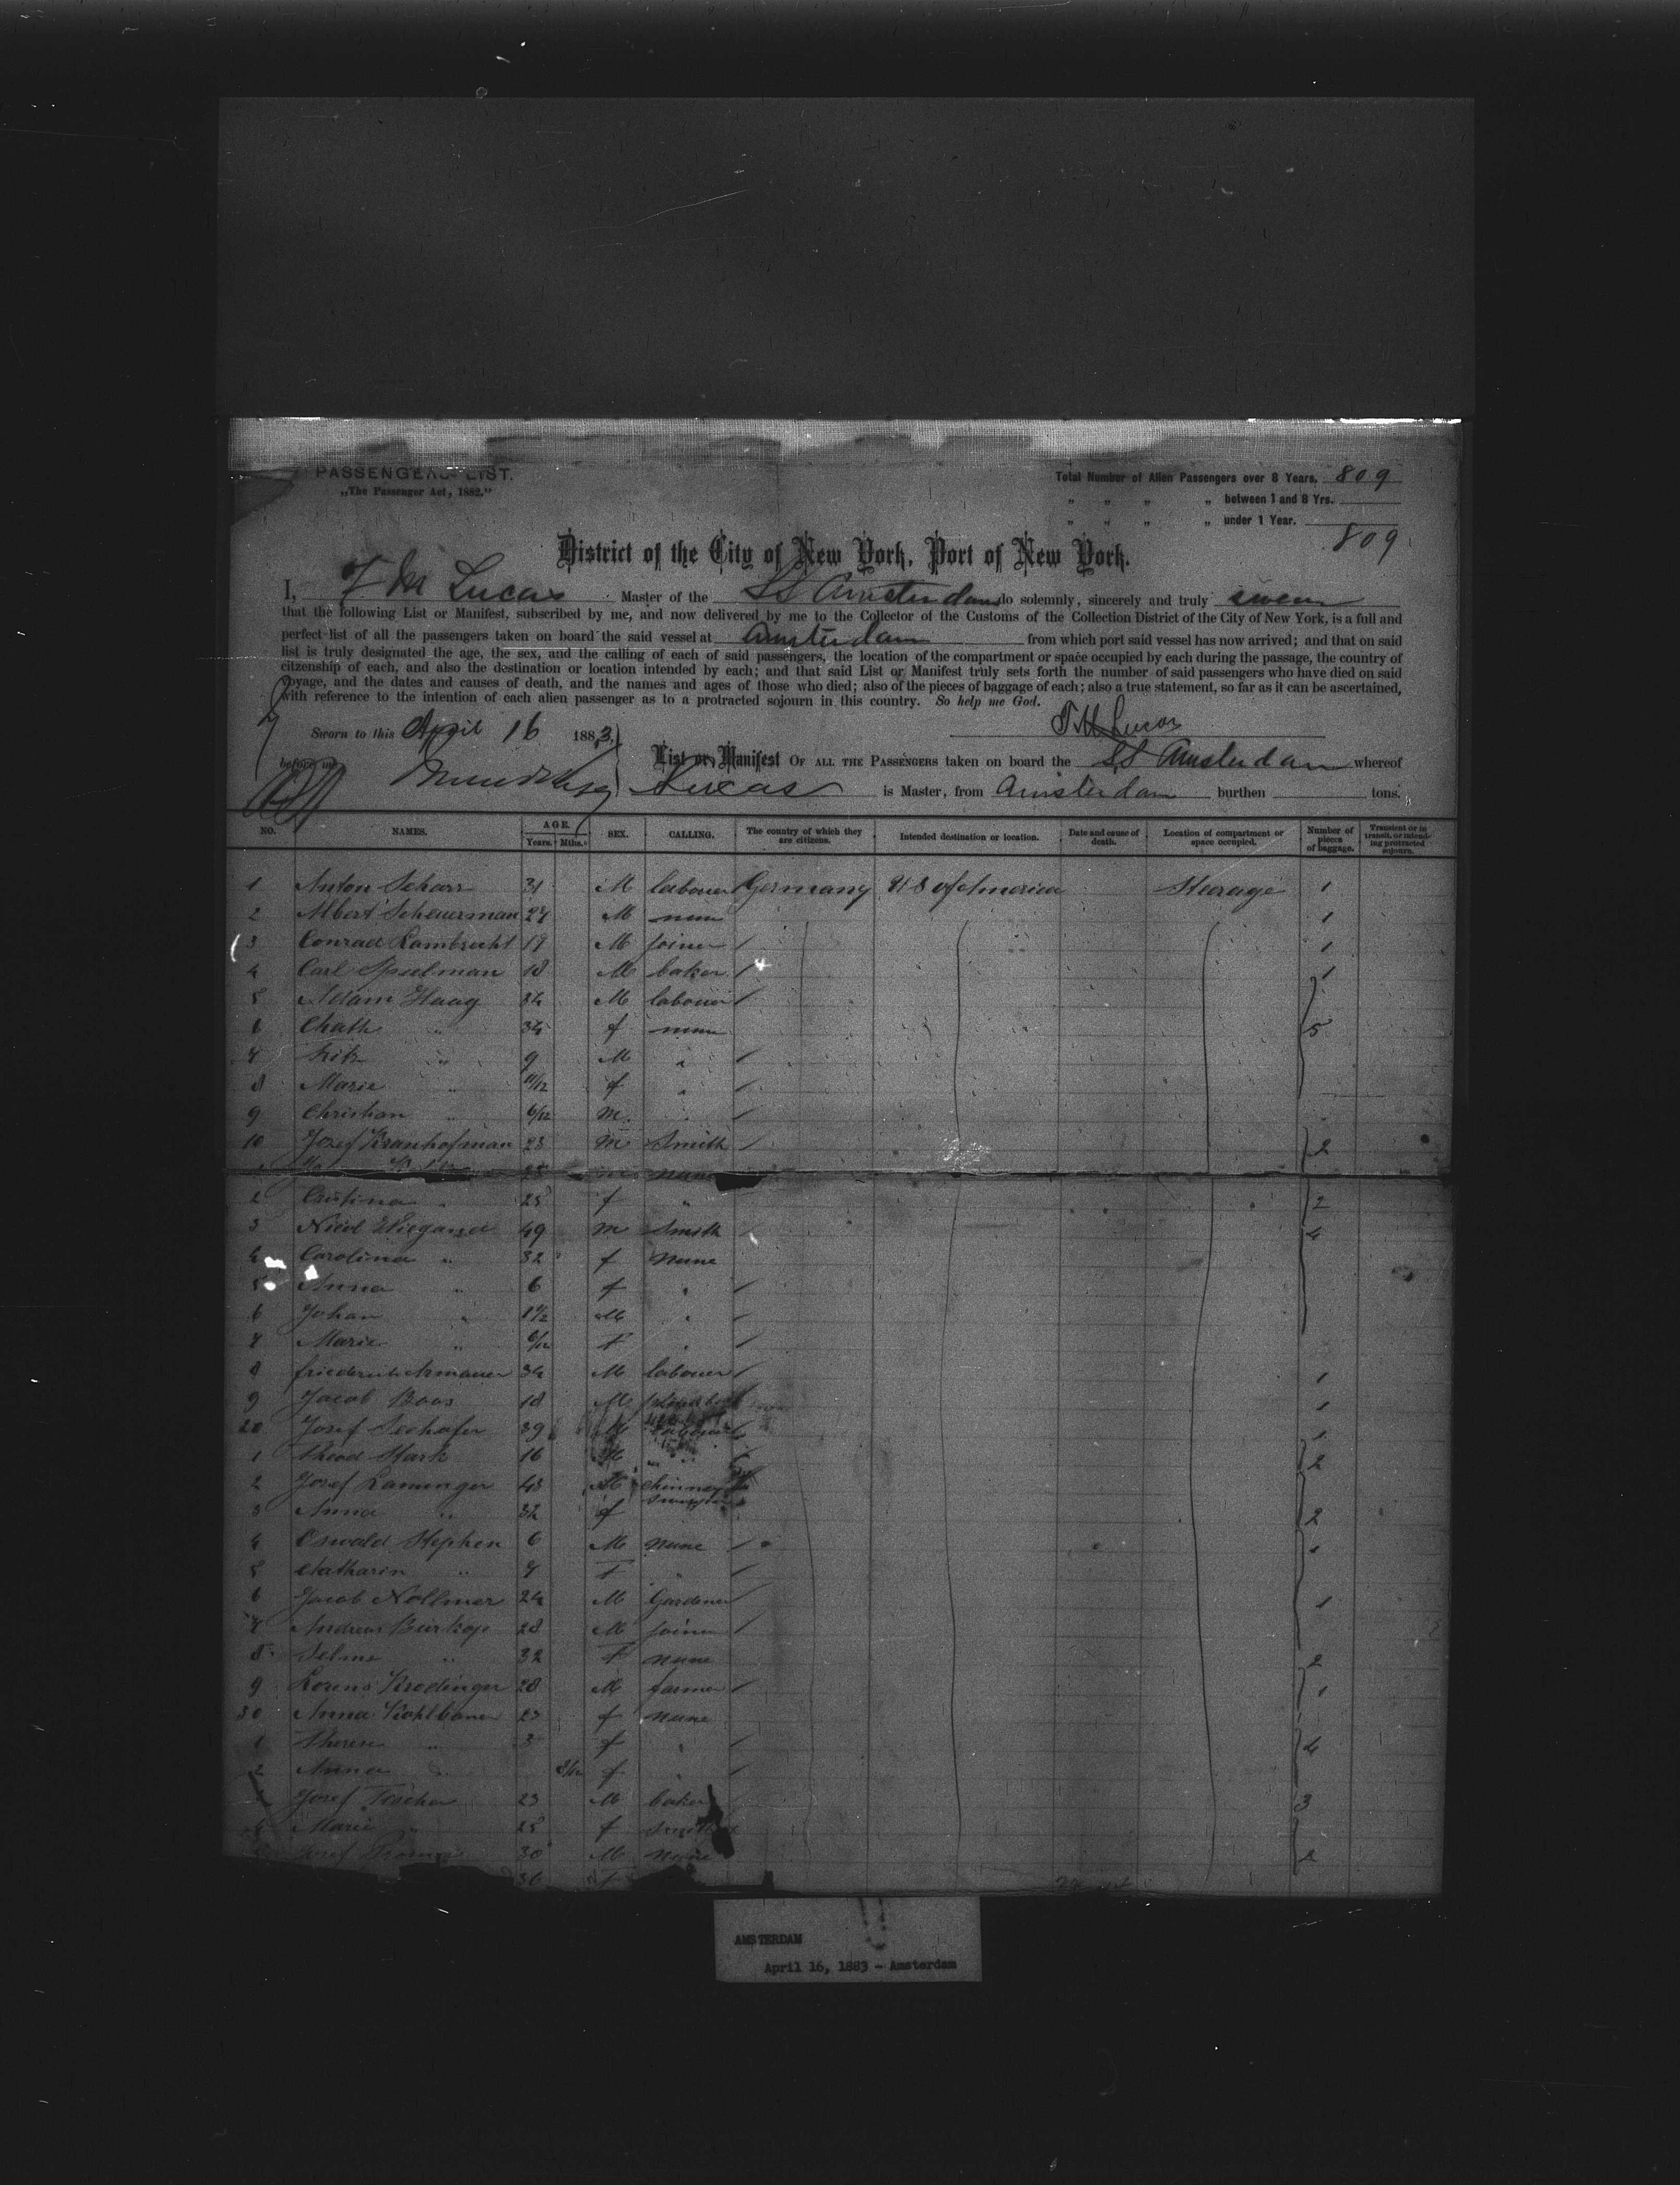 PASSENGERS LIST.
„The Passenger Act, 1882."
Total Number of Alien Passengers over 8 Years. 809
„ „ „ „ between 1 and 8 Yrs.
„ „ „ „ under 1 Year.
809
District of the City of New York, Port of New York.
I, Lucas Master of the SS Amsterdam do solemnly, sincerely and truly swear
that the following List or Manifest, subscribed by me, and now delivered by me to the Collector of the Customs of the Collection District of the City of New York, is a full and
perfect list of all the passengers taken on board the said vessel at Amsterdam from which port said vessel has now arrived; and that on said
list is truly designated the age, the sex, and the calling of each of said passengers, the location of the compartment or space occupied by each during the passage, the country of
citzenship of each, and also the destination or location intended by each; and that said List or Manifest truly sets forth the number of said passengers who have died on said
voyage, and the dates and causes of death, and the names and ages of those who died; also of the pieces of baggage of each; also a true statement, so far as it can be ascertained,
with reference to the intention of each alien passenger as to a protracted sojourn in this country. So help me God.
Sworn to this April 16 1883,
Lucas
before me
List or Manifest OF ALL THE PASSENGERS taken on board the SS Amsterdam whereof
Lucas is Master, from Amsterdam burthen tons.
NO. NAMES. AGE. Years. Mths. SEX. CALLING. The country of which they are citizens. Intended destination or location. Date and cause of death. Location of compartment or space occupied. Number of pieces of baggage. Transient or in transit, or intending protracted sojourn.
1 Anton Scharr 31 M labourer Germany U S of America Steerage 1
2 Albert Scheuerman 27 M none 1
3 Conrad Lambrecht 19 M joiner 1
4 Carl Speelman 18 M baker 1
5 Adam Haag 34 M labourer
6 Chath " 34 f none 5
7 Fritz " 9 M "
8 Marie " 11/12 f "
9 Christian " 6/12 M
10 Jozef Kranhofman 23 M Smith 2
25 none
2 Cristina " 25 f " 2
3 Nicol Wiegand 49 M Smith 4
4 Carolina " 32 f none
5 Anna " 6 f "
6 Johan " M "
7 Marie " 6/12 F "
8 34 M labourer 1
9 Jacob Boos 18 M 1
20 Josef Seehofer 39 M 1
1 Theod Stark 16 M 2
2 Josef Laminger 43 M chimney sweeper
3 Anna " 32 f 2
4 Oswald Stephen 6 M none 1
5 Chatharin " 7 F "
6 Jacob Nollmer 24 M Gardener 1
7 Andreas Burkop 28 M joiner
8 Selma " 32 F none 2
9 Lorens Krodinger 28 M farmer 1
30 Anna Kohlbauer 23 f none
1 Therese " 3 f " 4
2 Anna " 3/12 f
Josef Fischer 23 M baker 3
Marie " 25 f
30 M none 2
36 f
AMSTERDAM
April 16, 1883 - Amsterdam